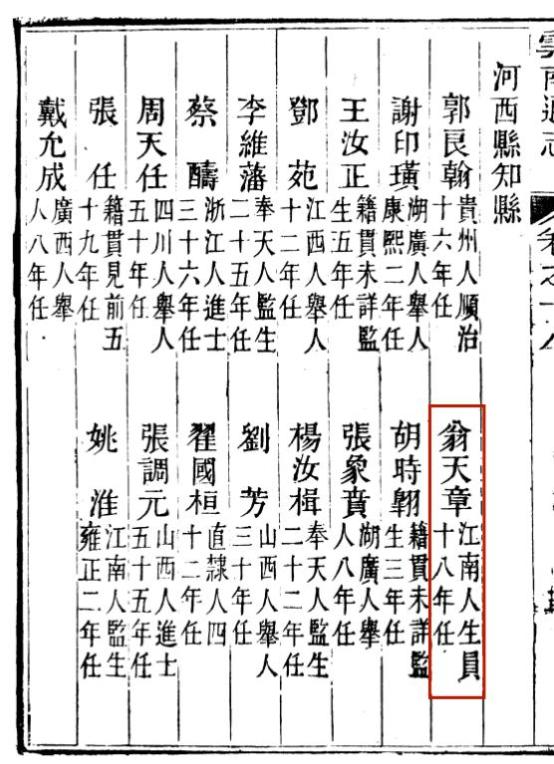 雲南通志
卷之十八
河西縣知縣
郭良翰 貴州人順治十六年任
翁天章 江南人生員十八年任
謝印璜 湖廣人舉人康熙二年任
胡時翺 籍貫未詳監生三年任
王汝正 籍貫未詳監生五年任
張象賁 湖廣人舉人八年任
鄧苑 江西人舉人十二年任
楊汝楫 奉天人監生二十二年任
李維藩 奉天人監生二十五年任
劉芳 山西人舉人三十年任
蔡醻 浙江人進士三十六年任
翟國桓 直隸人四十二年任
周天任 四川人舉人五十年任
張調元 山西人進士五十五年任
張任 籍貫見前五十九年任
姚淮 江南人監生雍正二年任
戴允成 廣西人舉人八年任